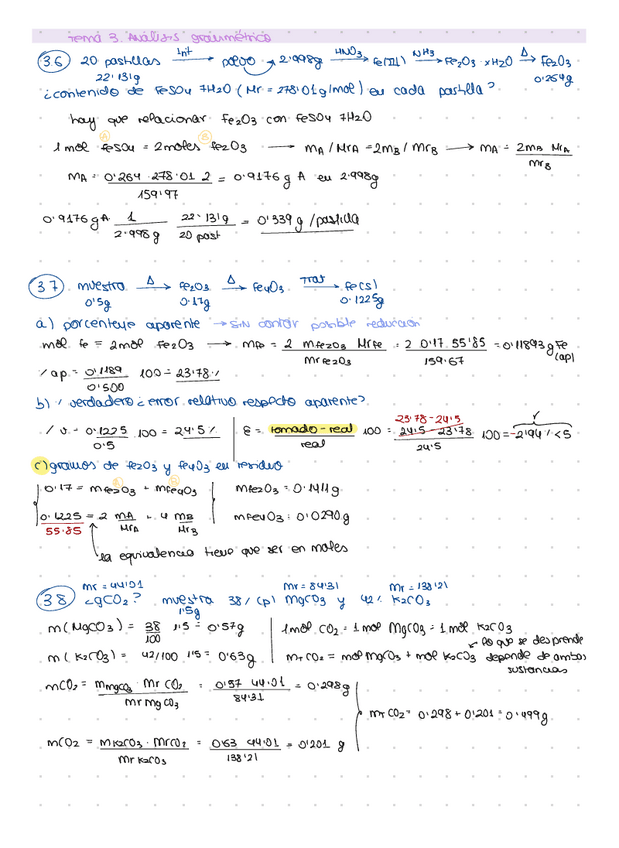 Tema 3. Análisis gravimétrico
3.6 20 pastillas →(Int) polvo → 2'998g →(HNO3) Fe(III) →(NH3) Fe2O3 · xH2O →(Δ) Fe2O3
22'131g 0'264g
¿contenido de FeSO4 7H2O (Mr = 278'01g/mol) en cada pastilla?
hay que relacionar Fe2O3 con FeSO4 7H2O
A B
1 mol FeSO4 = 2moles Fe2O3 → mA / MrA = 2mB / MrB → mA = 2mB MrA / MrB
mA = 0'264 · 278'01 2 / 159'97 = 0'9176 g A en 2'998g
0'9176 g A 1 / 2'998g 22'131g / 20 past = 0'339 g /pastilla
3.7 muestra →(Δ) Fe2O3 →(Δ) Fe4O3 →(Trat) Fe(s)
0'5g 0'17g 0'1225g
a) porcentaje aparente → SIN contar posible reducción
mol Fe = 2mol Fe2O3 → mFe = 2 mFe2O3 MrFe / MrFe2O3 = 2 0'17 55'85 / 159'67 = 0'11893 g Fe (ap)
% ap = 0'1189 / 0'500 100 = 23'78 %
b) % verdadero ¿error relativo respecto aparente?
% v = 0'1225 / 0'5 100 = 24'5 %
23'78 - 24'5
ε = tomado - real / real 100 = 24'5 - 23'78 / 24'5 100 = -2'94 % < 5
c) gramos de Fe2O3 y Fe4O3 en residuo
A B
0'17 = mFe2O3 + mFe4O3
mFe2O3 = 0'1411g
0'1225 / 55'85 = 2 mA / MrA + 4 mB / MrB
mFe4O3 = 0'0290g
la equivalencia tiene que ser en moles
mr = 44'01 mr = 84'31 mr = 138'21
3.8 ¿gCO2? muestra 38% (p) MgCO3 y 42% K2CO3
1'5g
m (MgCO3) = 38 / 100 1'5 = 0'57g
1mol CO2 = 1mol MgCO3 = 1mol K2CO3
lo que se desprende
m (K2CO3) = 42/100 1'5 = 0'63g
mT CO2 = mol MgCO3 + mol K2CO3 depende de ambas
sustancias
mCO2 = mMgCO3 · Mr CO2 / Mr MgCO3 = 0'57 44'01 / 84'31 = 0'298g
mT CO2 = 0'298 + 0'201 = 0'499g
mCO2 = mK2CO3 · MrCO2 / Mr K2CO3 = 0'63 44'01 / 138'21 = 0'201 g